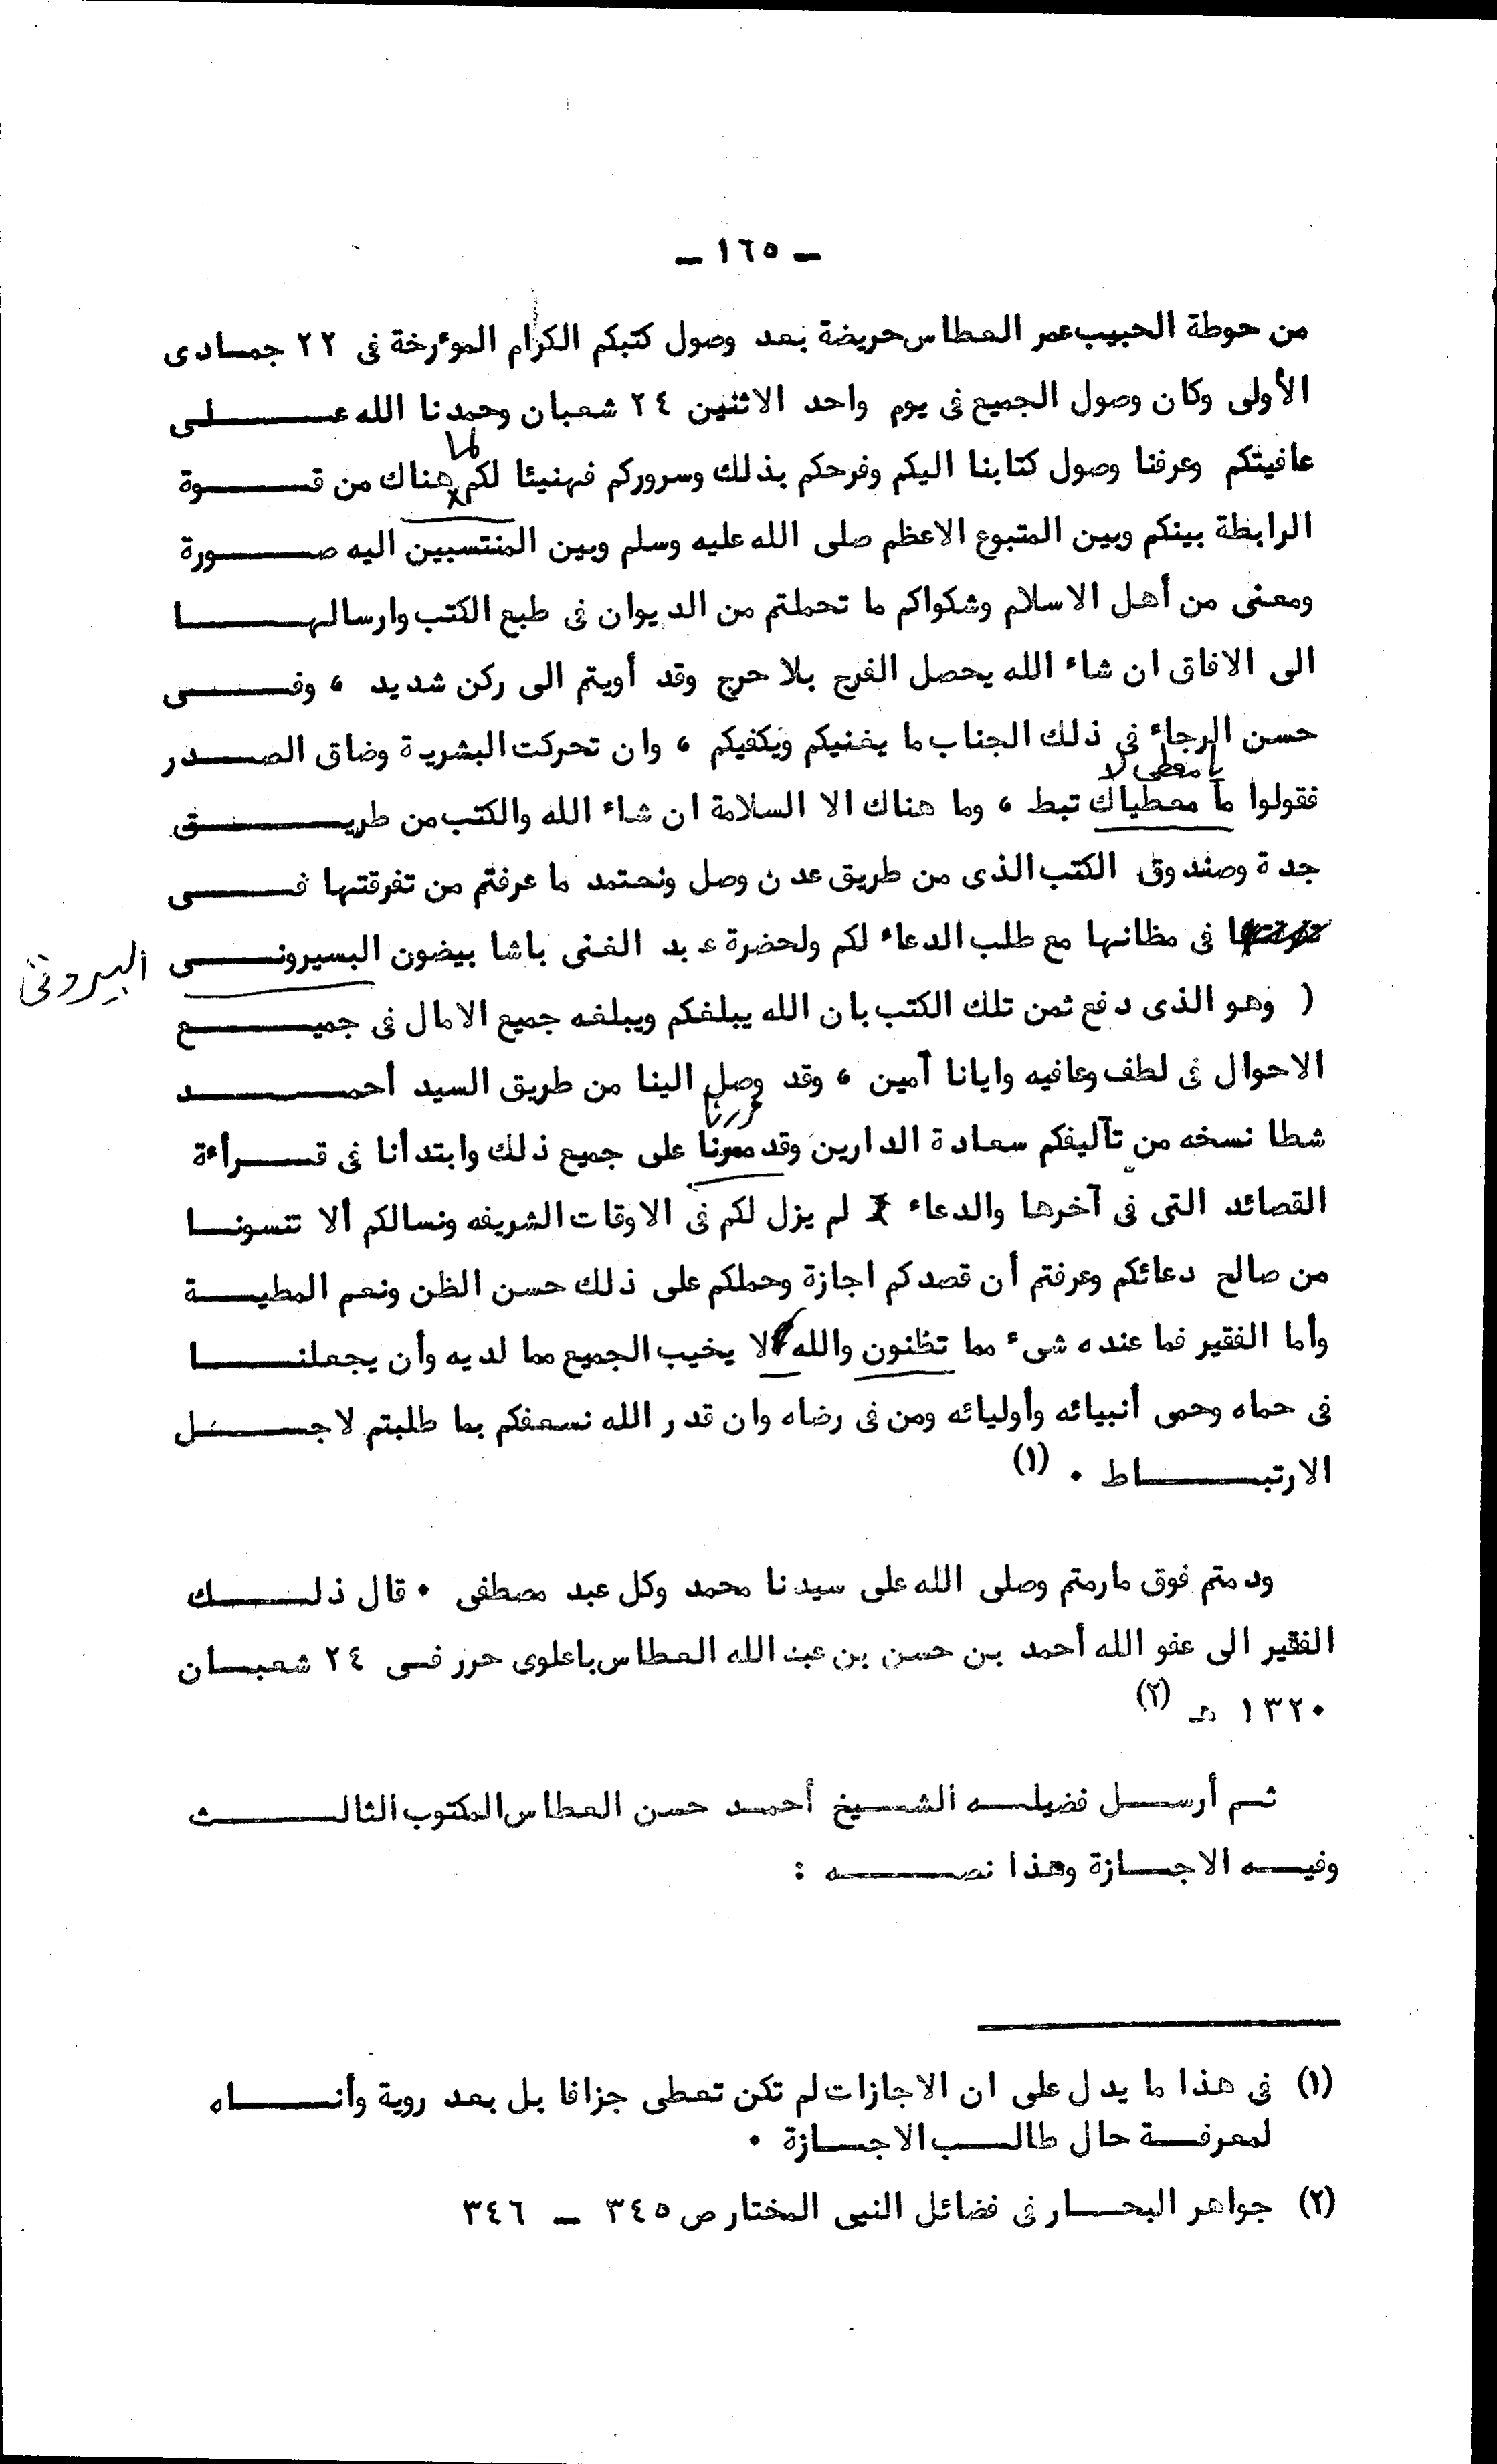 - ١٦٥ -
من حوطة الحبيب عمر العطاس حريضة بعد وصول كتبكم الكرام المؤرخة فى ٢٢ جمادى
الأولى وكان وصول الجميع فى يوم واحد الاثنين ٢٤ شعبان وحمدنا الله على
عافيتكم وعرفنا وصول كتابنا اليكم وفرحكم بذلك وسروركم فهنيئا لكم لما هناك من قوة
الرابطة بينكم وبين المتبوع الاعظم صلى الله عليه وسلم وبين المنتسبين اليه صورة
ومعنى من أهل الاسلام وشكواكم ما تحملتم من الديوان فى طبع الكتب وارسالها
الى الافاق ان شاء الله يحصل الفرج بلا حرج وقد أويتم الى ركن شديد ، وفى
حسن الرجاء فى ذلك الجناب ما يغنيكم ويكفيكم ، وان تحركت البشرية وضاق الصدر
يا معطى لا
فقولوا ما معطياك تبط ، وما هناك الا السلامة ان شاء الله والكتب من طريق
جدة وصندوق الكتب الذى من طريق عدن وصل ونعتمد ما عرفتم من تفرقتها فى
فى مظانها مع طلب الدعاء لكم ولحضرة عبد الغنى باشا بيضون البسيرونى البيروتى
( وهو الذى دفع ثمن تلك الكتب بان الله يبلغكم ويبلغه جميع الامال فى جميع
الاحوال فى لطف وعافيه وايانا آمين ، وقد وصل الينا من طريق السيد أحمد
شطا نسخه من تآليفكم سعادة الدارين وقد مررنا على جميع ذلك وابتدأنا فى قرأءة
القصائد التى فى آخرها والدعاء لم يزل لكم فى الاوقات الشريفه ونسالكم ألا تنسونا
من صالح دعائكم وعرفتم أن قصدكم اجازة وحملكم على ذلك حسن الظن ونعم المطية
وأما الفقير فما عنده شىء مما تظنون والله لا يخيب الجميع مما لديه وأن يجعلنا
فى حماه وحمى أنبيائه وأوليائه ومن فى رضاه وان قدر الله نسعفكم بما طلبتم لاجل
الارتباط . (١)
ودمتم فوق مارمتم وصلى الله على سيدنا محمد وكل عبد مصطفى . قال ذلك
الفقير الى عفو الله أحمد بن حسن بن عبد الله العطاس باعلوى حرر فى ٢٤ شعبان
١٣٢٠ هـ (٢)
ثم أرسل فضيله الشيخ أحمد حسن العطاس المكتوب الثالث
وفيه الاجازة وهذا نصه :
(١) فى هذا ما يدل على ان الاجازات لم تكن تعطى جزافا بل بعد روية وأناه
لمعرفة حال طالب الاجازة .
(٢) جواهر البحار فى فضائل النبى المختار ص ٣٤٥ - ٣٤٦